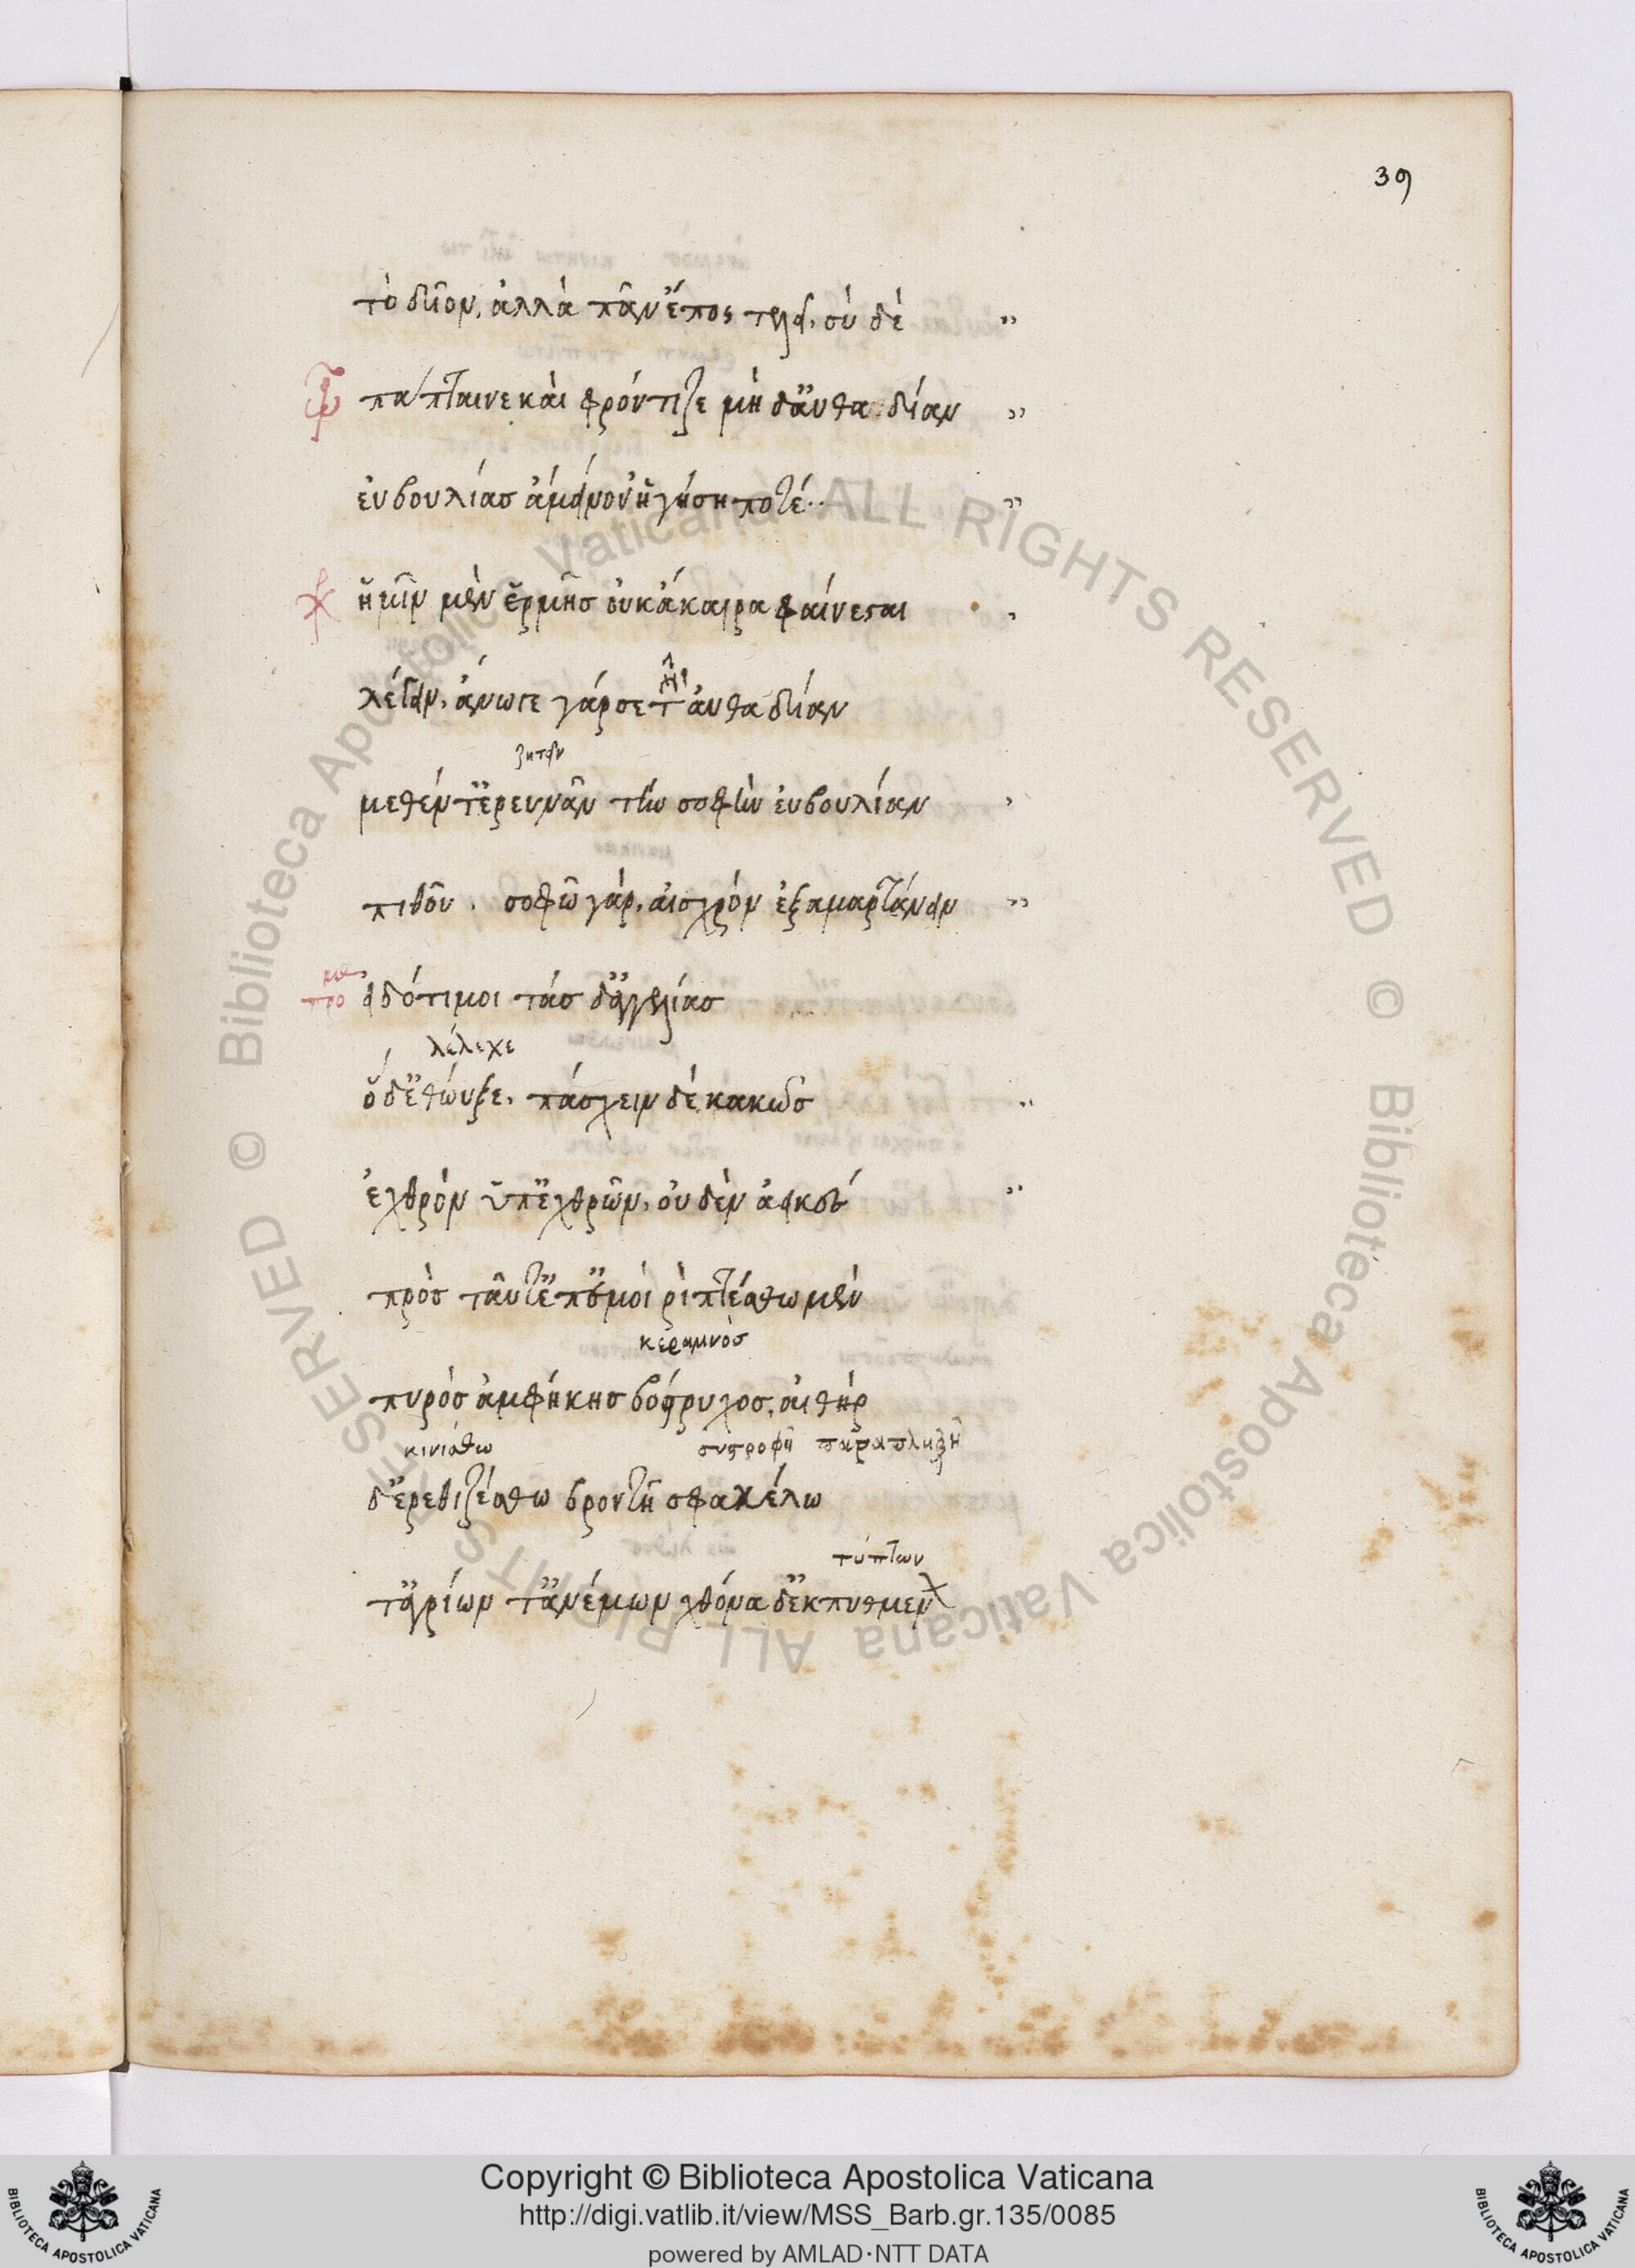 39
τὸ δῖον, ἀλλὰ πᾶν ἔπος τελεῖ, σὺ δὲ
πάπταινε καὶ φρόντιζε μὴ δ' αὐθαδίαν
εὐβουλίασ ἀμείνον' ἡγήση ποτέ..
ἡμῖν μὲν ἑρμῆσ οὐκ ἄκαιρα φαίνεται
λέγειν. ἄνωγε γάρ σε τ' αὐθαδίαν
ζητεῖν
μεθέντ' ἐρευνᾶν τὴν σοφὴν εὐβουλίαν
πιθοῦ. σοφῶ γάρ, αἰσχρόν ἐξαμαρτάνειν
προμ
εἰδότι μοι τάσ δ' ἀγγελίασ
λέλεχε
ὅδ' ἐθώυξε. πάσχειν δὲ κακῶσ
ἐχθρὸν ὑπ' ἐχθρῶν, οὐδὲν ἀεικέσ
πρὸσ ταῦτ' ἐπ' ἐμοὶ ῥιπτέσθω μὲν
κεραυνὸσ
πυρὸσ ἀμφήκησ βόστρυχοσ, αἰθὴρ
κινιάσθω συστροφῆ παραπληξῆ
δ' ἐρεθιζέσθω βροντῆ σφακέλω
τύπτων
τ' ἀγρίων τ' ἀνέμων χθόνα δ' ἐκ πυθμεν
Copyright © Biblioteca Apostolica Vaticana
http://digi.vatlib.it/view/MSS_Barb.gr.135/0085
powered by AMLAD·NTT DATA
BIBLIOTECA APOSTOLICA VATICANA
BIBLIOTECA APOSTOLICA VATICANA
© Biblioteca Apostolica Vaticana ALL RIGHTS RESERVED © Biblioteca Apostolica Vaticana ALL RIGHTS RESERVED